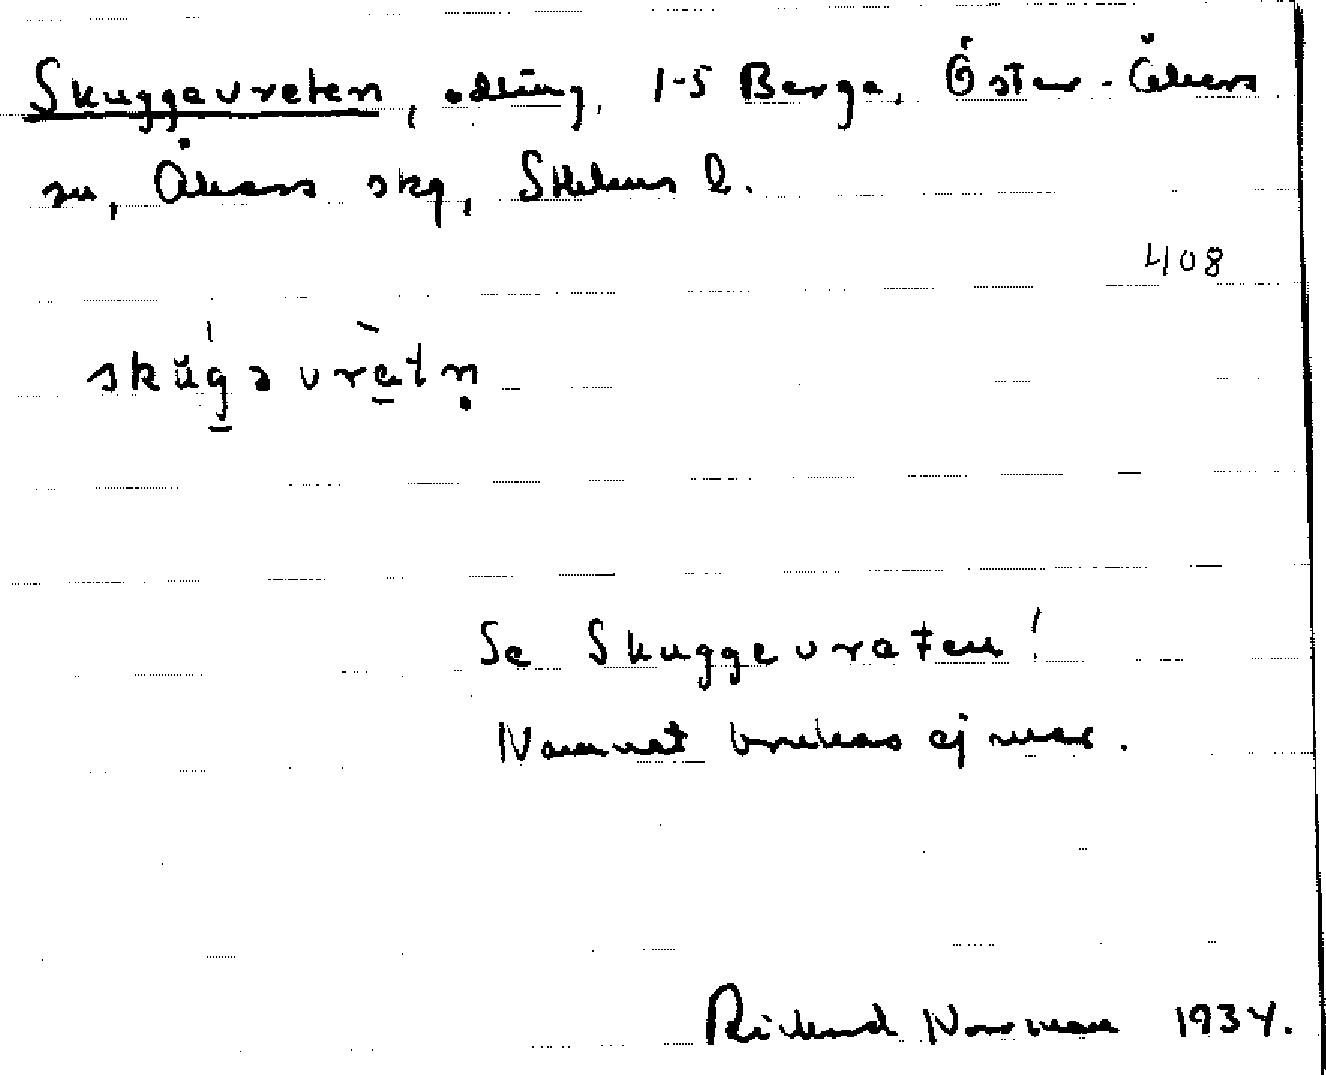 Skuggevreten, odling, 1-5 Berga, Öster-Åkers
sn, Åkers skg, Sthlms l.
408
skŭg̲ə vrètṇ
Se Skuggevreten!
Namnet brukas ej mer.
Rickard Norrman 1934.